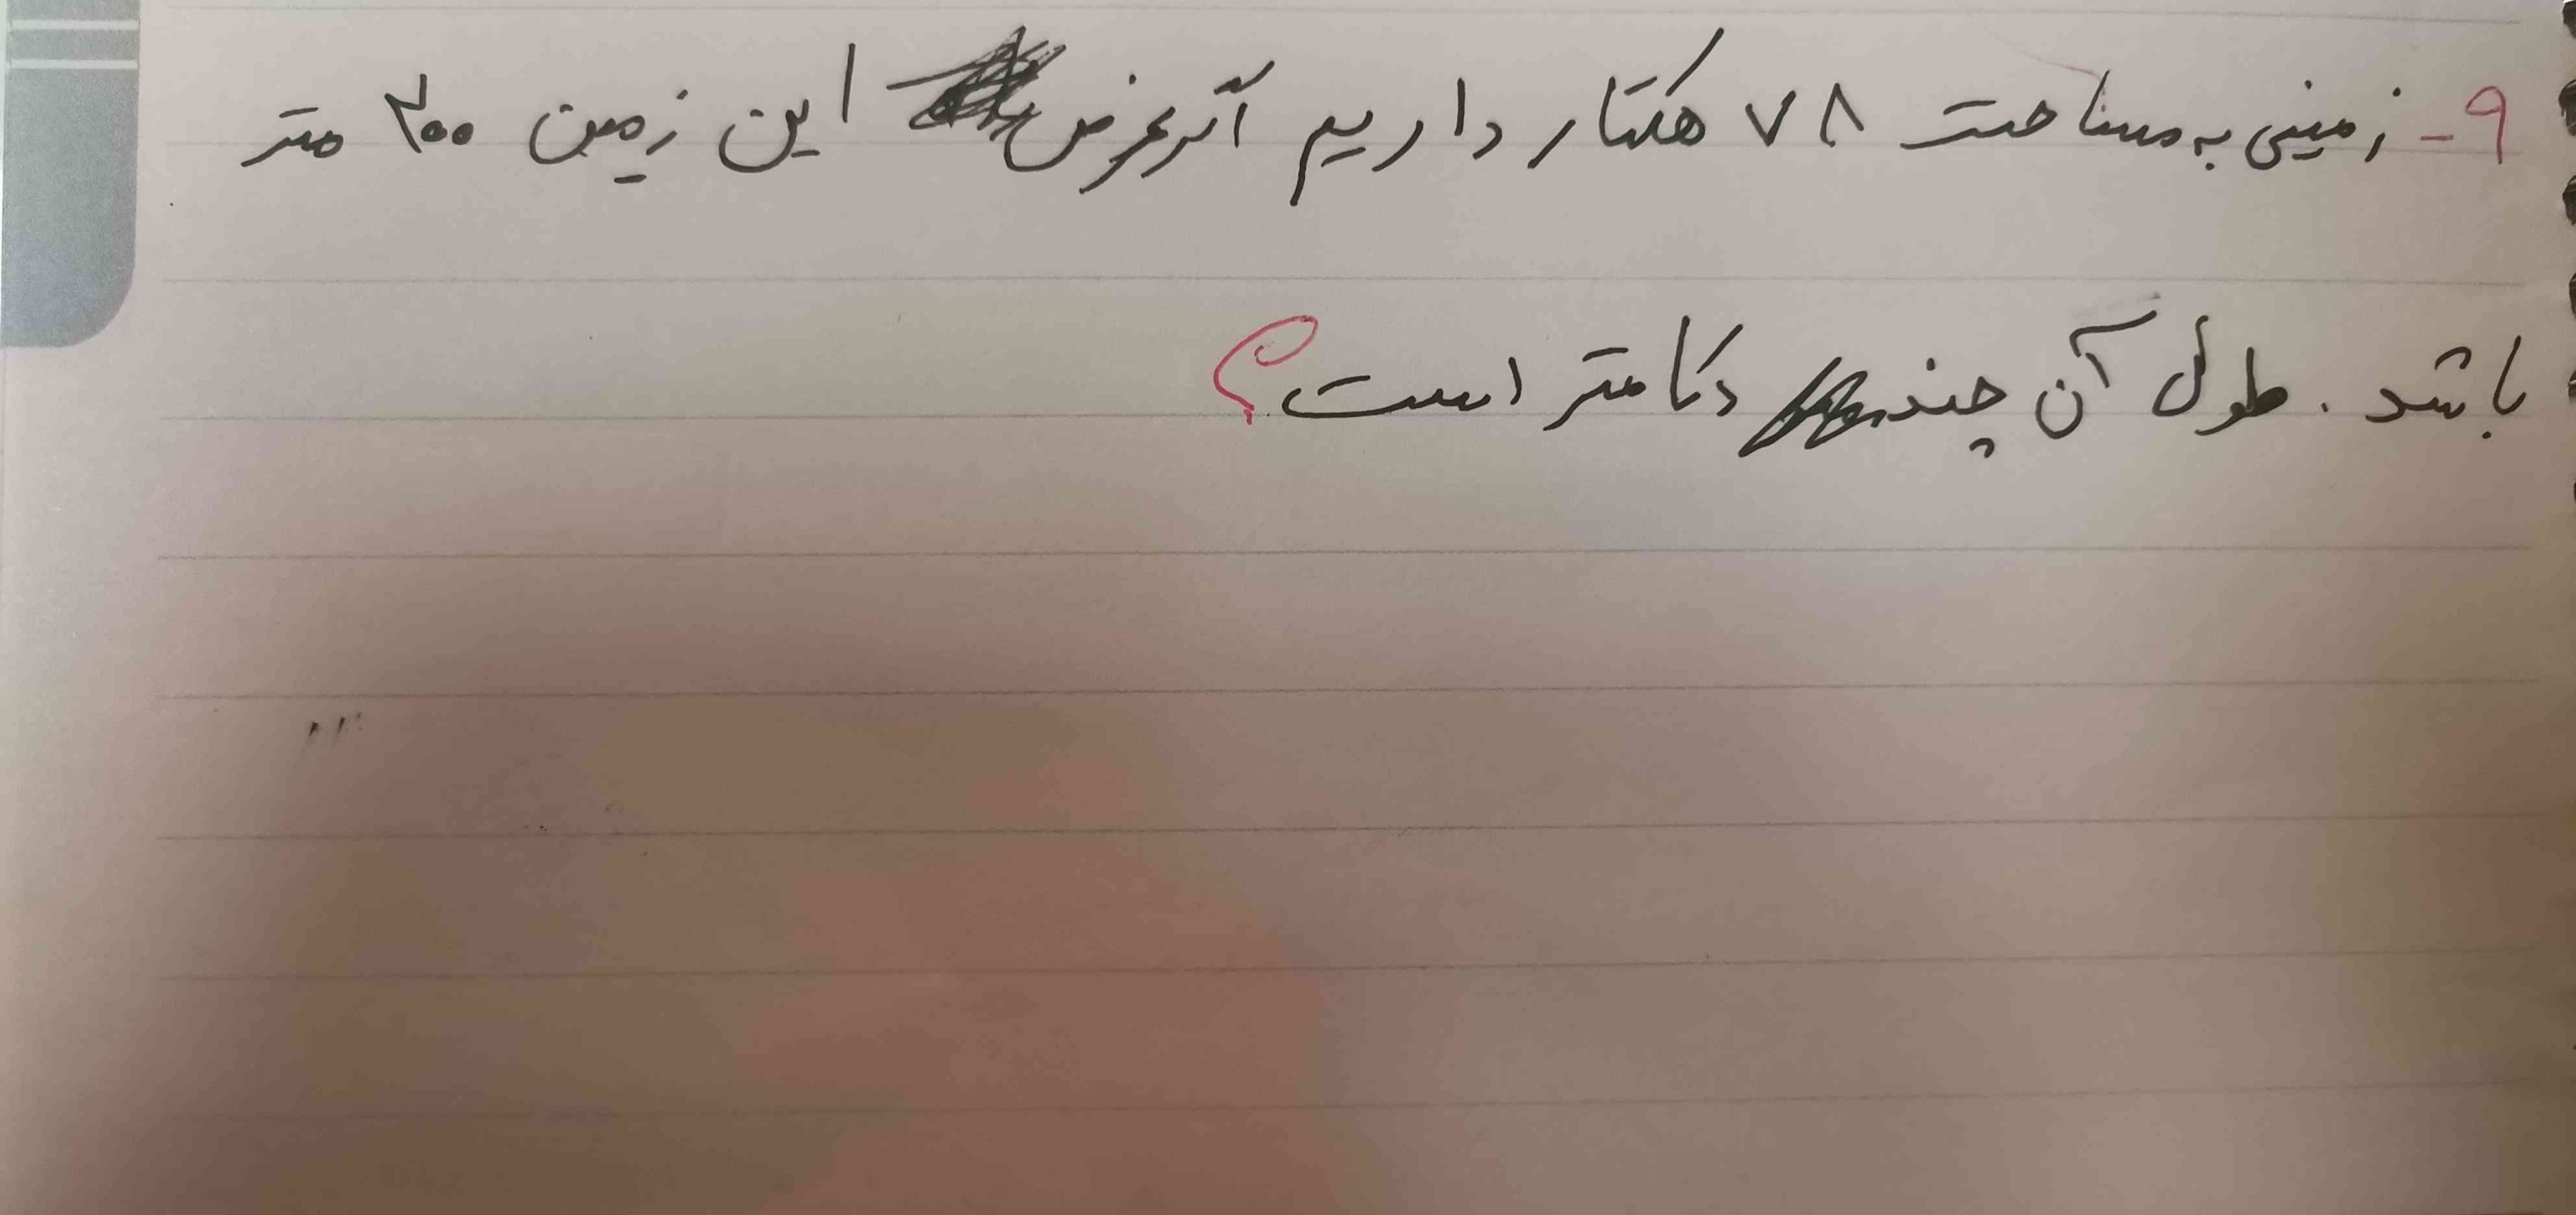 ۹- زمینی به مساحت ۷۸ هکتار داریم اگر عرض این زمین ۳۰۰ متر
باشد. طول آن چند دکامتر است؟